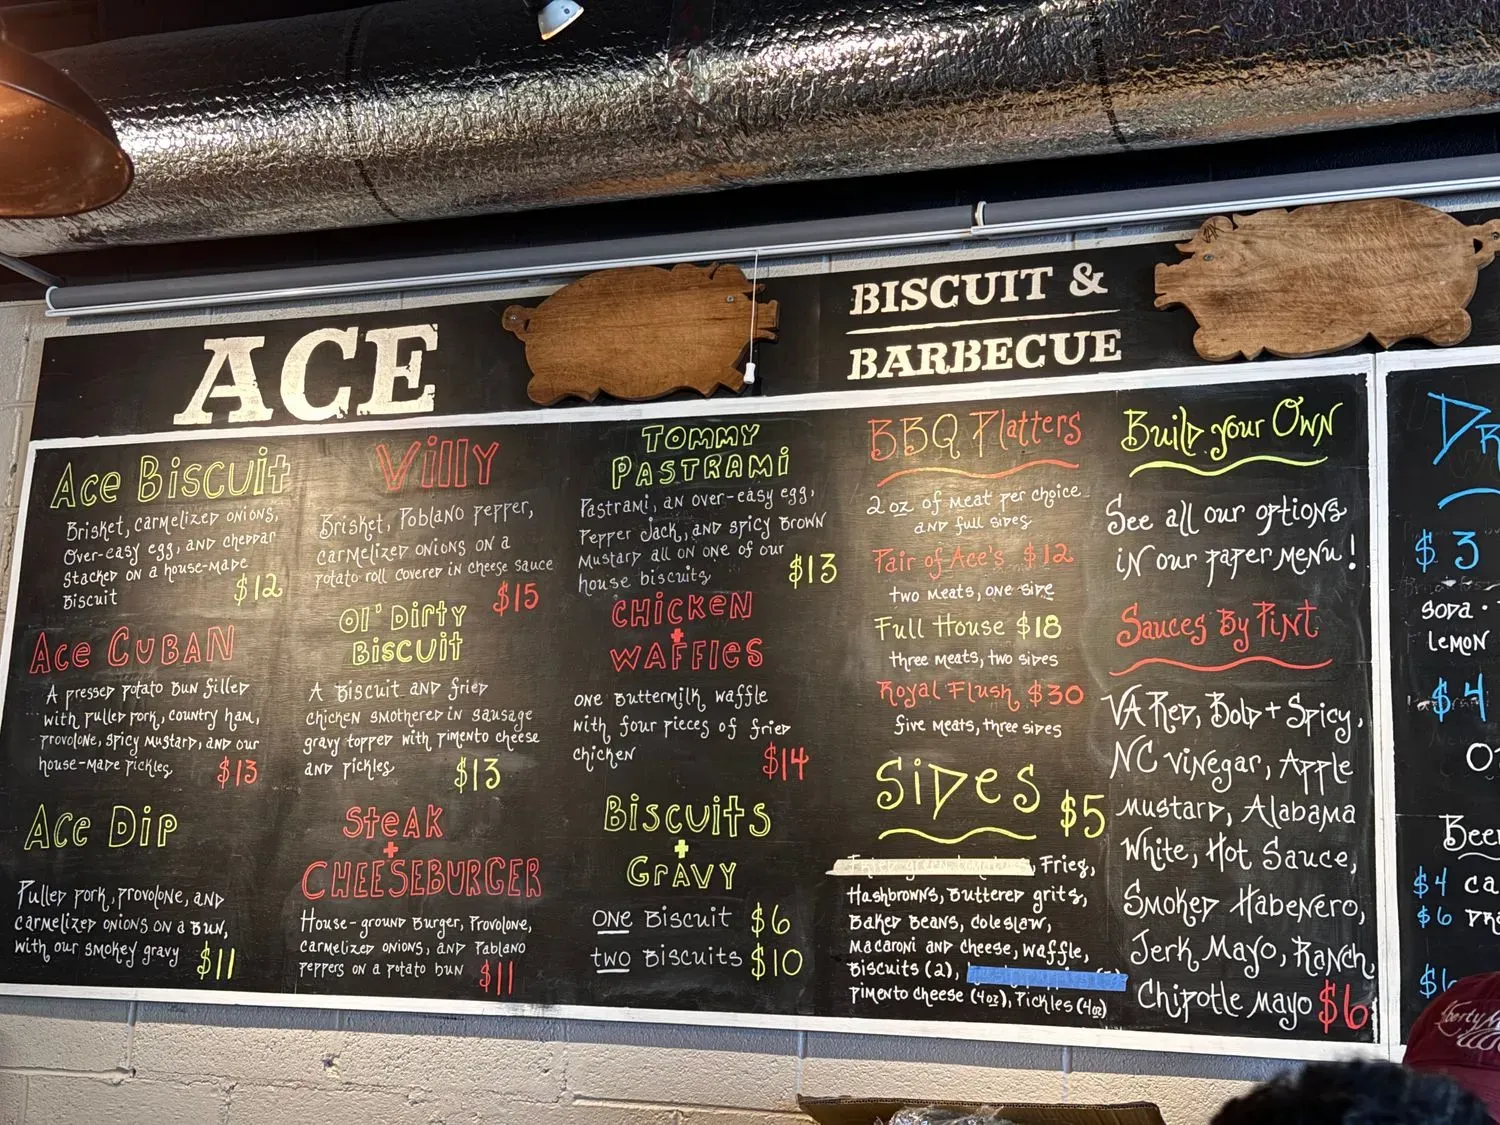 ACE
BISCUIT &
BARBECUE
Ace Biscuit
Brisket, carmelized onions,
over-easy egg, and cheddar
stacked on a house-made
biscuit
$12
Ace Cuban
A pressed potato bun filled
with pulled pork, country ham,
provolone, spicy mustard, and our
house-made pickles
$13
Ace Dip
Pulled pork, provolone, and
carmelized onions on a bun,
with our smokey gravy
$11
Villy
Brisket, Poblano pepper,
carmelized onions on a
potato roll covered in cheese sauce
$15
Ol' Dirty
Biscuit
A biscuit and fried
chicken smothered in sausage
gravy topped with pimento cheese
and pickles
$13
Steak
+
Cheeseburger
House-ground burger, Provolone,
carmelized onions, and Pablano
peppers on a potato bun
$11
Tommy
Pastrami
Pastrami, an over-easy egg,
Pepper Jack, and spicy brown
mustard all on one of our
house biscuits
$13
Chicken
+
Waffles
one buttermilk waffle
with four pieces of fried
chicken
$14
Biscuits
+
Gravy
one Biscuit $6
two Biscuits $10
BBQ Platters
2 oz of meat per choice
and full sides
Pair of Ace's $12
two meats, one side
Full House $18
three meats, two sides
Royal Flush $30
five meats, three sides
Sides $5
Fried green tomatoes, Fries,
Hashbrowns, buttered grits,
Baked Beans, coleslaw,
macaroni and cheese, waffle,
Biscuits (2),
pimento cheese (4oz), Pickles (4oz)
Build your Own
See all our options
in our paper menu!
Sauces By Pint
VA Red, Bold + Spicy,
NC vinegar, Apple
mustard, Alabama
White, Hot Sauce,
Smoked Habenero,
Jerk Mayo, Ranch,
Chipotle Mayo $6
$3
soda ·
lemon
$4
Beer
$4
$6